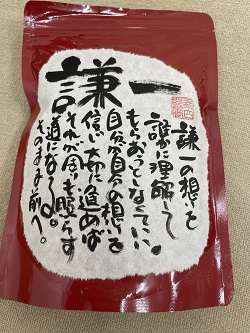 謙一
謙一の想いを
誰に理解して
もらおうとしなくていい。
自分が自分の想いを
信じて前に進めば
それが周りも照らす
道になる。
そのまま前へ。